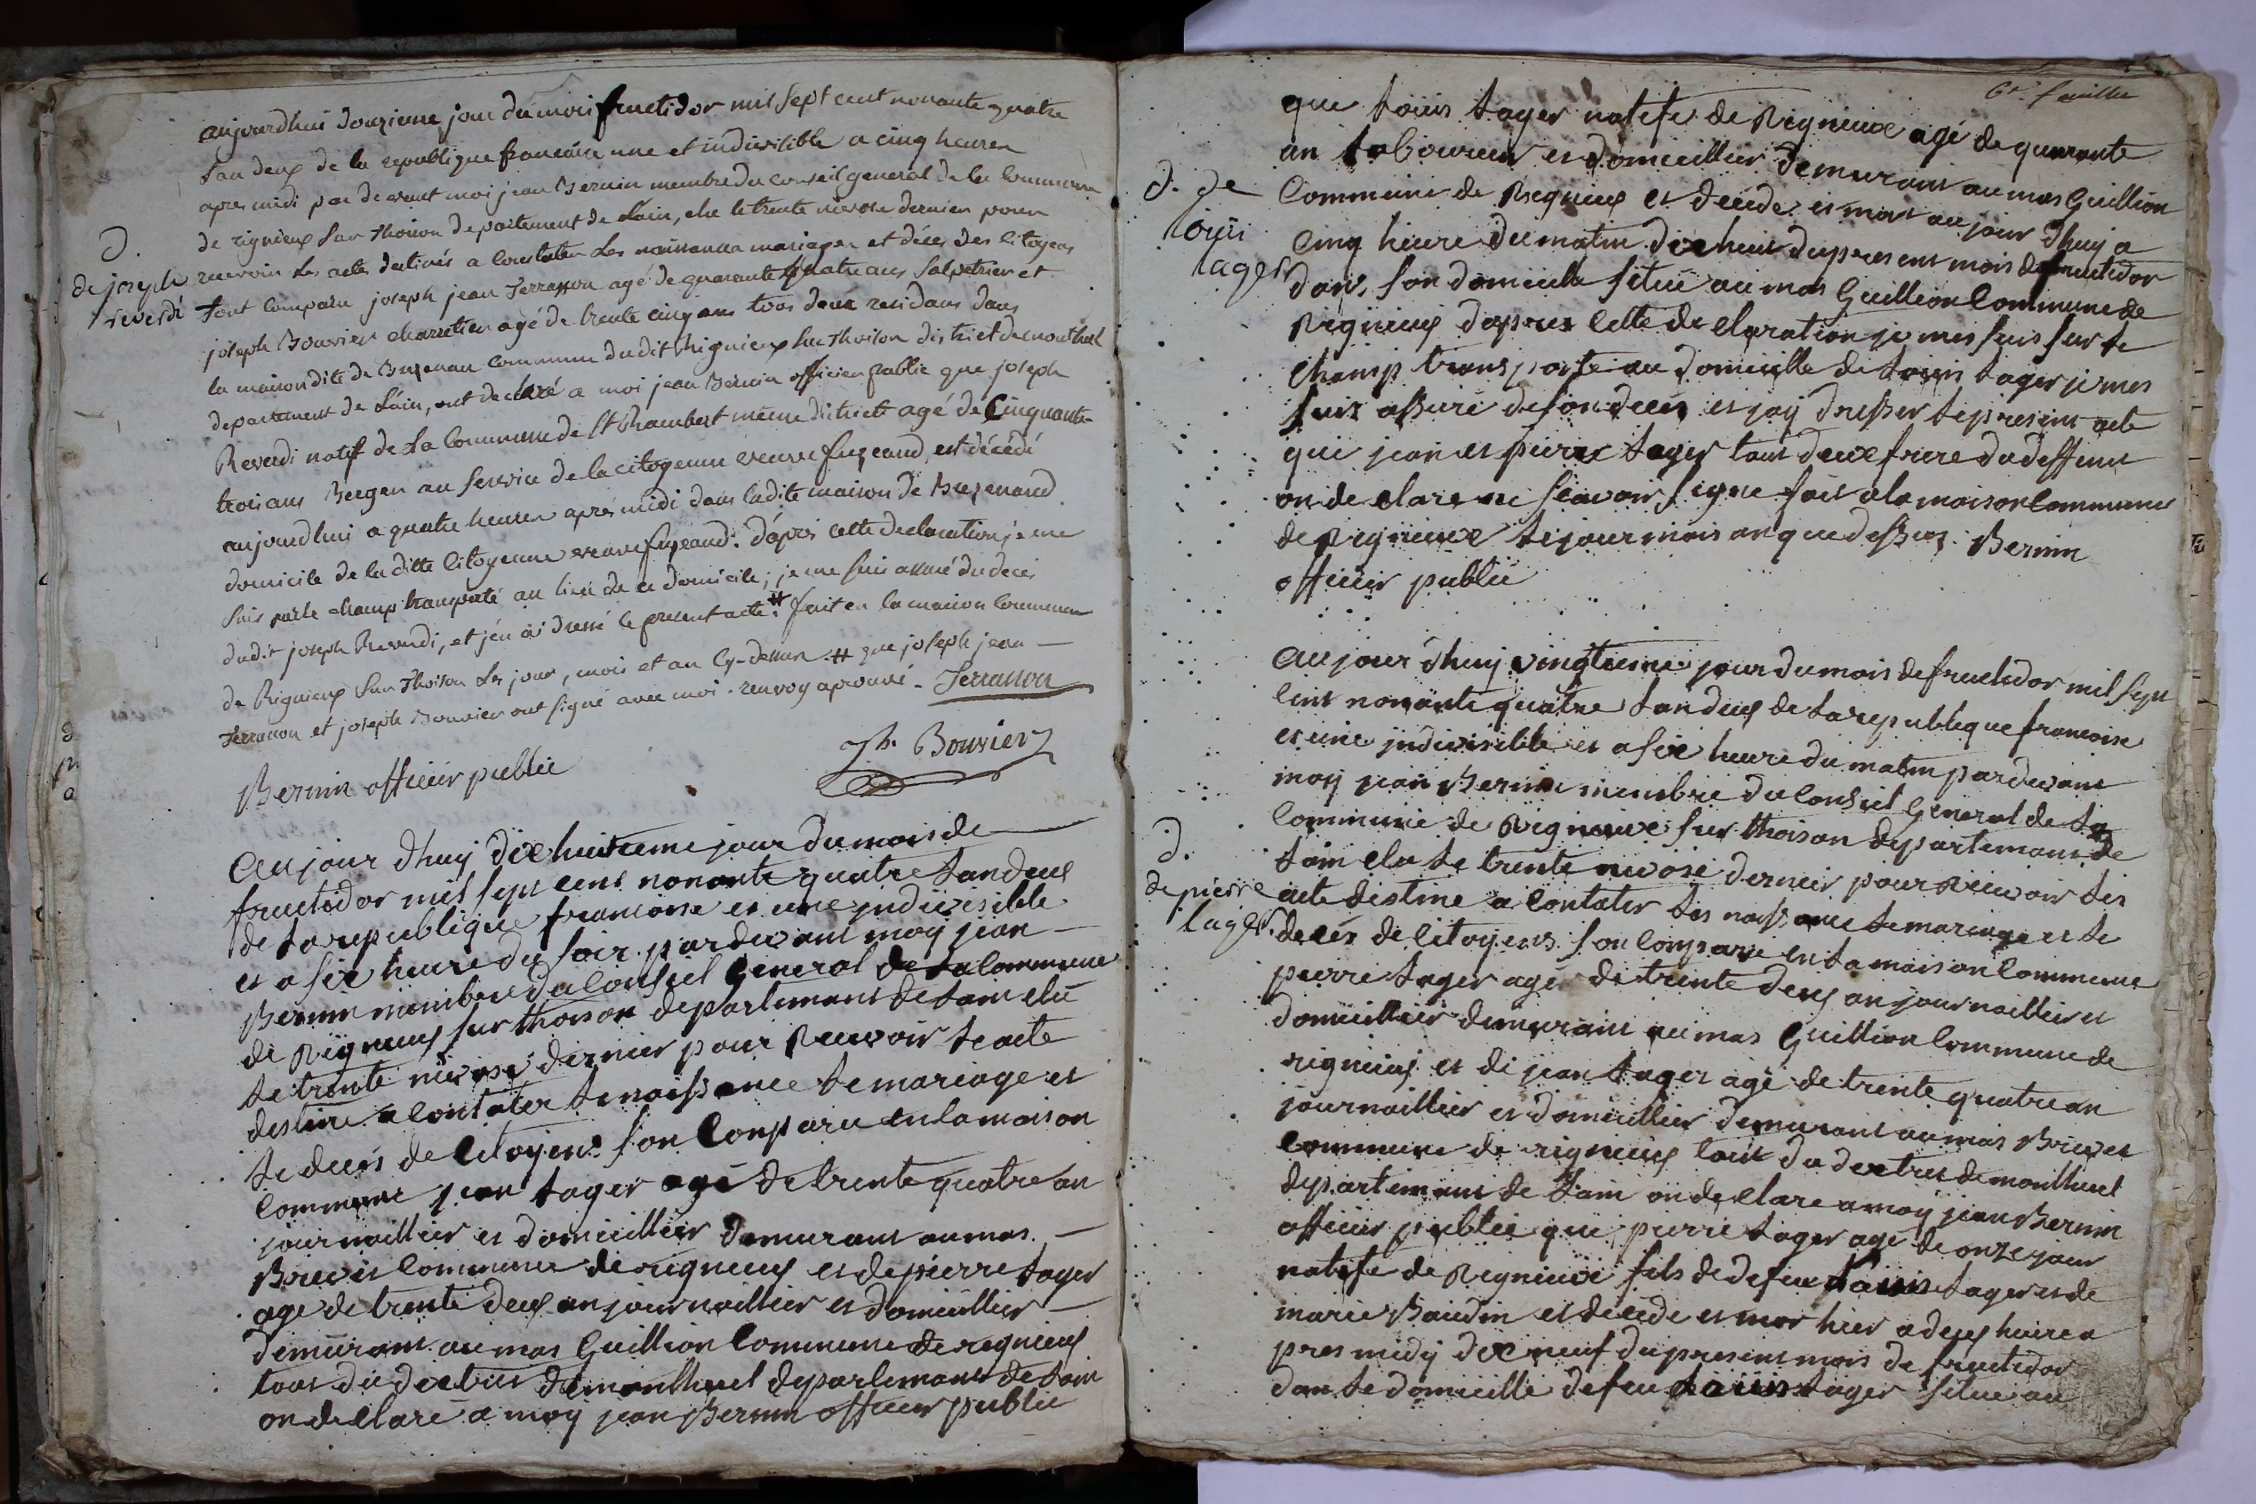 aujourdhui douzieme jour du mois fructidor mil sept cent nonante quatre
l'an deux de la republique francaise une et indivisible a cinq heures
apres midi par devant moi jean Bernin membre du conseil general de la commune
de rignieux sur thoison departement de Lain, elu le trente nivose dernier pour
D.
de joseph
reverdi
recevoir les actes destinés a constater les naissances mariages et déces des citoyens
sont comparu joseph jean Terrasson agé de quarante quatre ans salpetrier et
joseph Bouvier charretier agé de trente cinq ans tous deux residans dans
la maison dite de commune dudit Rignieux sur thoison district de montluel
departement de L'ain, ont declaré a moi jean Bernin officier public que joseph
Reverdi natif de la commune de St Rambert même district agé de cinquante
trois ans Berger au service de la citoyenne veuve est décédé
aujourdhui a quatre heures après midi dans ladite maison de
domicile de laditte citoyenne veuve d'après cette declaration je me
suis sur le champ transporté au lieu de ce domicile, je me suis assuré du déces
dudit joseph Reverdi, et j'en ai dressé le present acte # fait en la maison commune
de Rignieux sur thoison les jour, mois et an cy-dessus. # que joseph jean
Terrasson et joseph Bouvier ont signé avec moi. renvoy aprouvé. Terrasson
Jh. Bouvier
Bernin officier public
Aujour dhuy dixhuitieme jour du mois de
fructidor mil sept cent nonante quatre lan deux
de la republique francoise et une indivisible
et a six heure du soir par devant moy jean
Bernin membre du conseil general de la commune
de Rignieux sur thoison departemant de lain elu
le trente nivose dernier pour Recevoir le acte
destine a contater le naissance le mariage et
le deces de citoyens son conparu en la maison
commune jean lager agé de trente quatre an
journaillier et domicillier demurant au mas
Brevet commune de rignieux et de pierre lager
age de trente deux an journaillier et domicillier
demurant au mas Guillion commune de rignieux
tous du de montluel departemant de lain
on declaré a moy jean Bernin officier public
6e. feuillet
que louis lager natife de Rignieux agé de quarante
an laboureur et domicillier demurant au mas Guillion
D. de
louis
lager
commune de Rignieux et decede et mort aujour dhuy a
cinq heure du matin dix huit du present mois de fructidor
dans son domicille situé au mas Guillion commune de
Rignieux dapres cette declaration je mes suis sur le
champ transporté au domicille de louis lager je mes
suis assuré de son deces et jay dresser le present acte
que jean et pierre lager tout deux frere du deffunt
on declare ne scavoir signe fait a la maison commune
de Rignieux le jour mois an que dessus Bernin
officier public
Aujour dhuy vingtieme jour du mois de fructidor mil sept
cent nonante quatre lan deux de la republique francoise
et une jndivisible et a six heure du matin par devant
moy jean Bernin membre du conseil General de la
commune de Rignieux sur thoison departemant de
D.
de pierre
lager
lain elu le trente nivose dernier pour Recevoir les
acte destine a contater les naissance le mariage et le
deces de citoyens son conparu en la maison commune
pierre lager age de trente deux an journaillier et
domicillier demurant au mas Guillion commune de
rignieux et de jean lager agé de trente quatre an
journaillier et domicillier demurant au mas Brevet
commune de rignieux tout du de montluel
departemant de lain on declare a moy jean Bernin
officier public que pierre lager age de onze jour
natife de Rignieux fils de defeu louis lager et de
marie Baudin et decede et mor hier a deux heure a
pres midy dix neuf du present mois de fructidor
dan le domicille defeu louis lager situe au